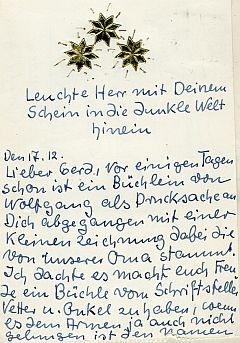 Leuchte Herr mit Deinem
Schein in die dunkle Welt
hinein
Den 17. 12.
Lieber Gerd, Vor einigen Tagen
schon ist ein Büchlein von
Wolfgang als Drucksache an
Dich abgegangen mit einer
kleinen Zeichnung dabei die
von unserer Oma stammt.
Ich dachte es macht euch Freu
de ein Büchle vom Schriftstelle
Vetter u. Onkel zu haben, wenn
es dem Armen ja auch nicht
gelungen ist den Namen